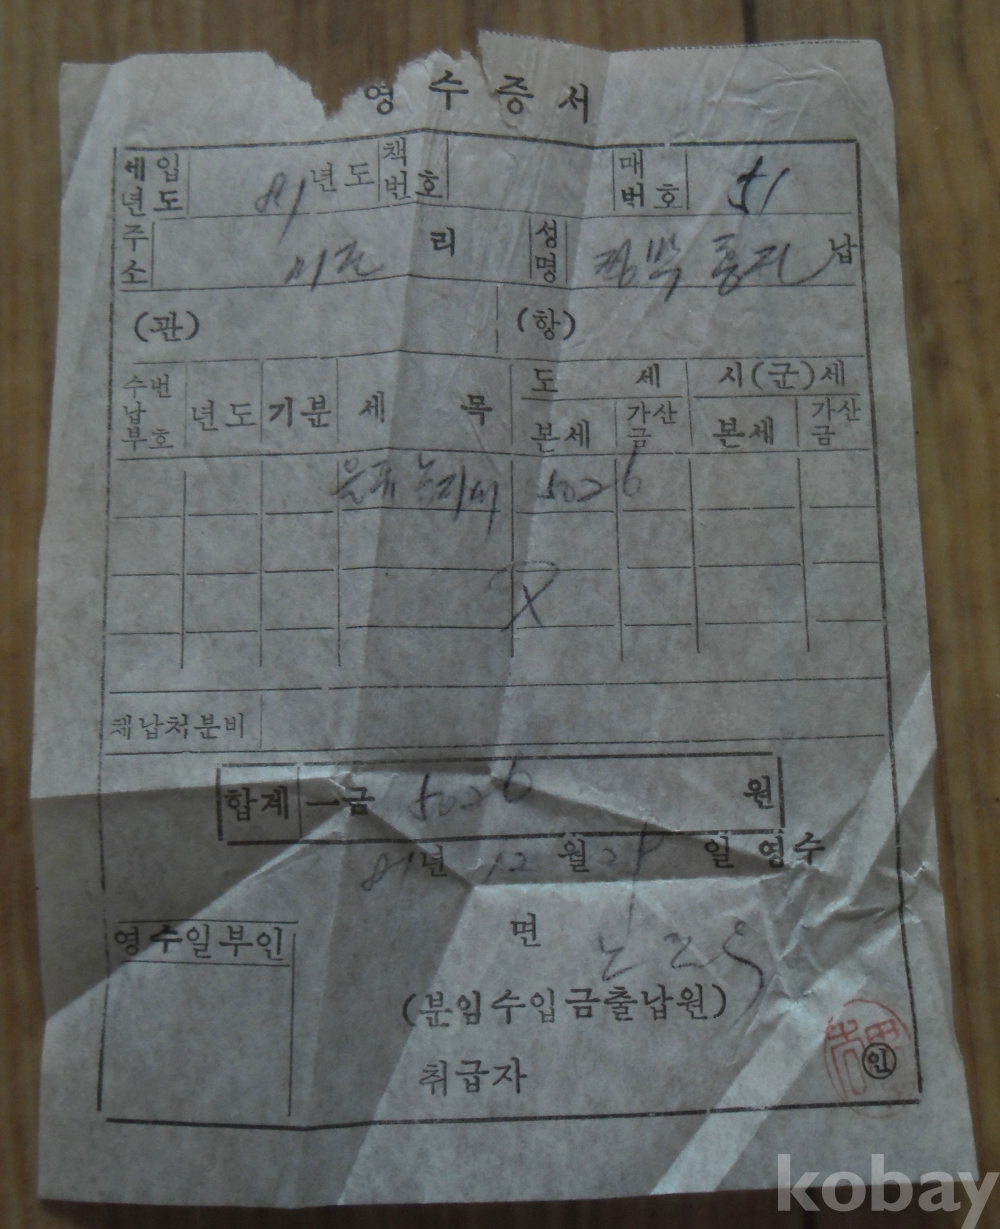 영수증서
세입년도 81 년도 책번호 매번호 51
주소 리 성명 납
(관) (항)
수납부번호 년도 기분 세목 도세 시(군)세
본세 가산금 본세 가산금
5026
체납처분비
합계 一금 5026 원
81년 12월 일 영수
영수일부인 면
(분임수입금출납원)
취급자 인
kobay